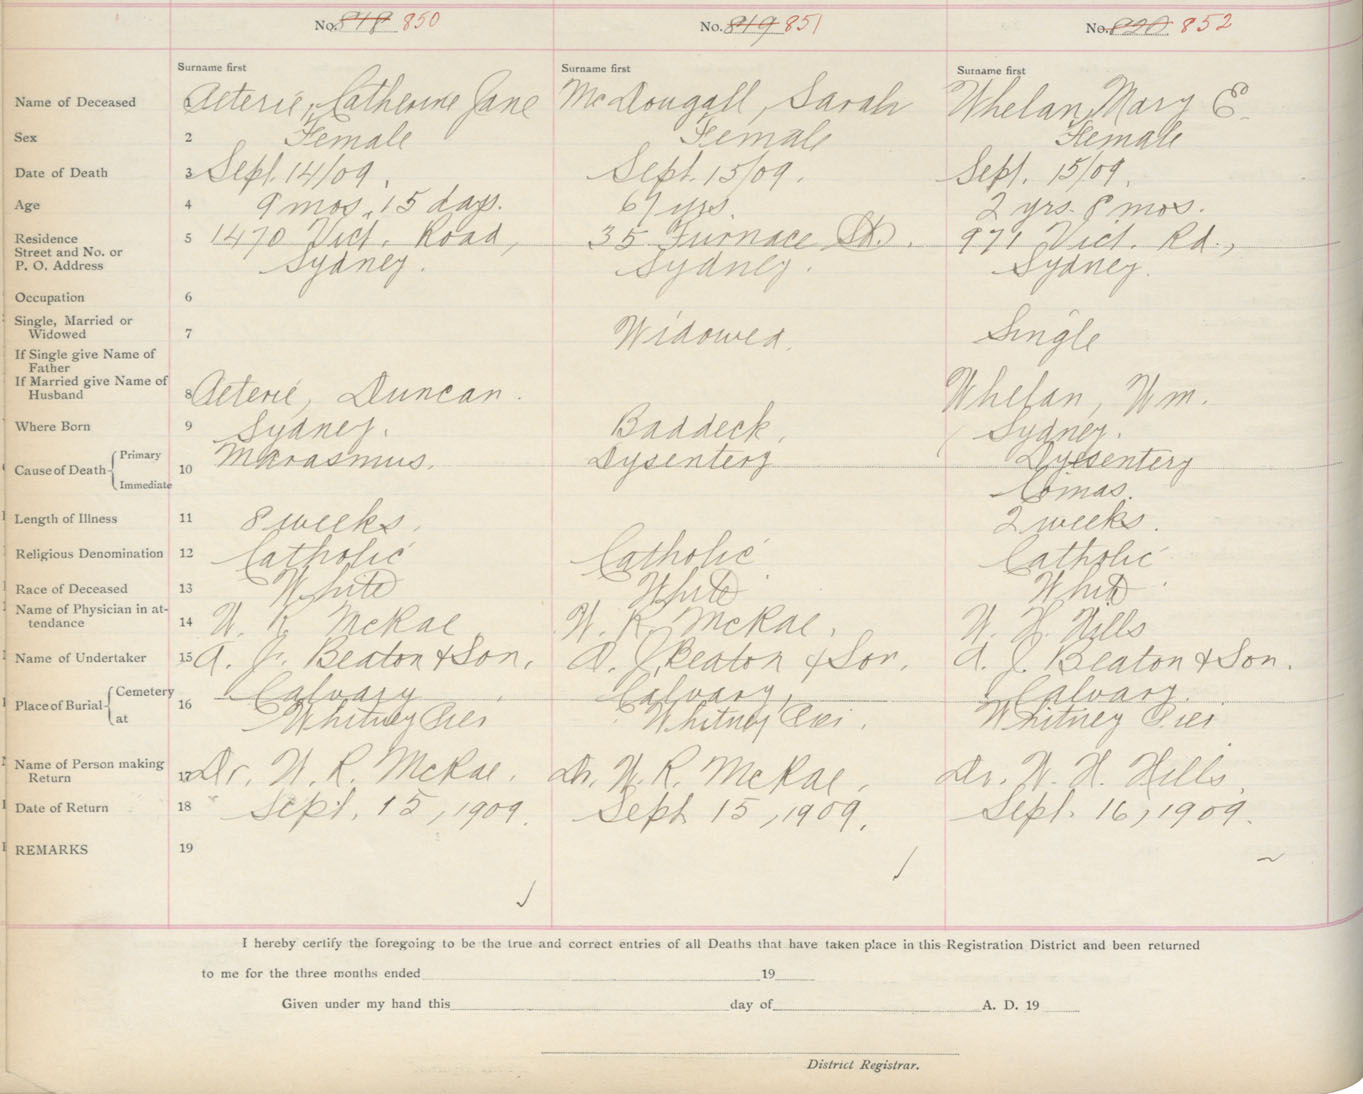 No. 848 850 No. 849 851 No. 850 852
Surname first Surname first Surname first
Name of Deceased 1 Aeterie, Catherine Jane McDougall, Sarah Whelan, Mary E.
Sex 2 Female Female Female
Date of Death 3 Sept. 14/09. Sept. 15/09. Sept. 15/09.
Age 4 9 mos. 15 days. 67 yrs. 2 yrs. 8 mos.
Residence 5 1470 Vict. Road, 35 Furnace St. 971 Vict. Rd.,
Street and No. or
P. O. Address Sydney. Sydney. Sydney.
Occupation 6
Single, Married or
Widowed 7 Widowed. Single
If Single give Name of
Father
If Married give Name of
Husband 8 Aeterie, Duncan. Whelan, Wm.
Where Born 9 Sydney. Baddeck, Sydney.
Cause of Death Primary 10 Marasmus. Dysentery Dysentery
Immediate Comas.
Length of Illness 11 8 weeks. 2 weeks.
Religious Denomination 12 Catholic Catholic Catholic
Race of Deceased 13 White White White
Name of Physician in at-
tendance 14 W. R. McRae W. R. McRae, W. H. Hills
Name of Undertaker 15 A. J. Beaton & Son. A. J. Beaton & Son. A. J. Beaton & Son.
Place of Burial Cemetery 16 Calvary Calvary, Calvary.
at Whitney Pier Whitney Pier. Whitney Pier
Name of Person making
Return 17 Dr. W. R. McRae. Dr. W. R. McRae, Dr. W. H. Hills.
Date of Return 18 Sept. 15, 1909. Sept. 15, 1909. Sept. 16, 1909.
REMARKS 19
I hereby certify the foregoing to be the true and correct entries of all Deaths that have taken place in this Registration District and been returned
to me for the three months ended 19
Given under my hand this day of A. D. 19
District Registrar.